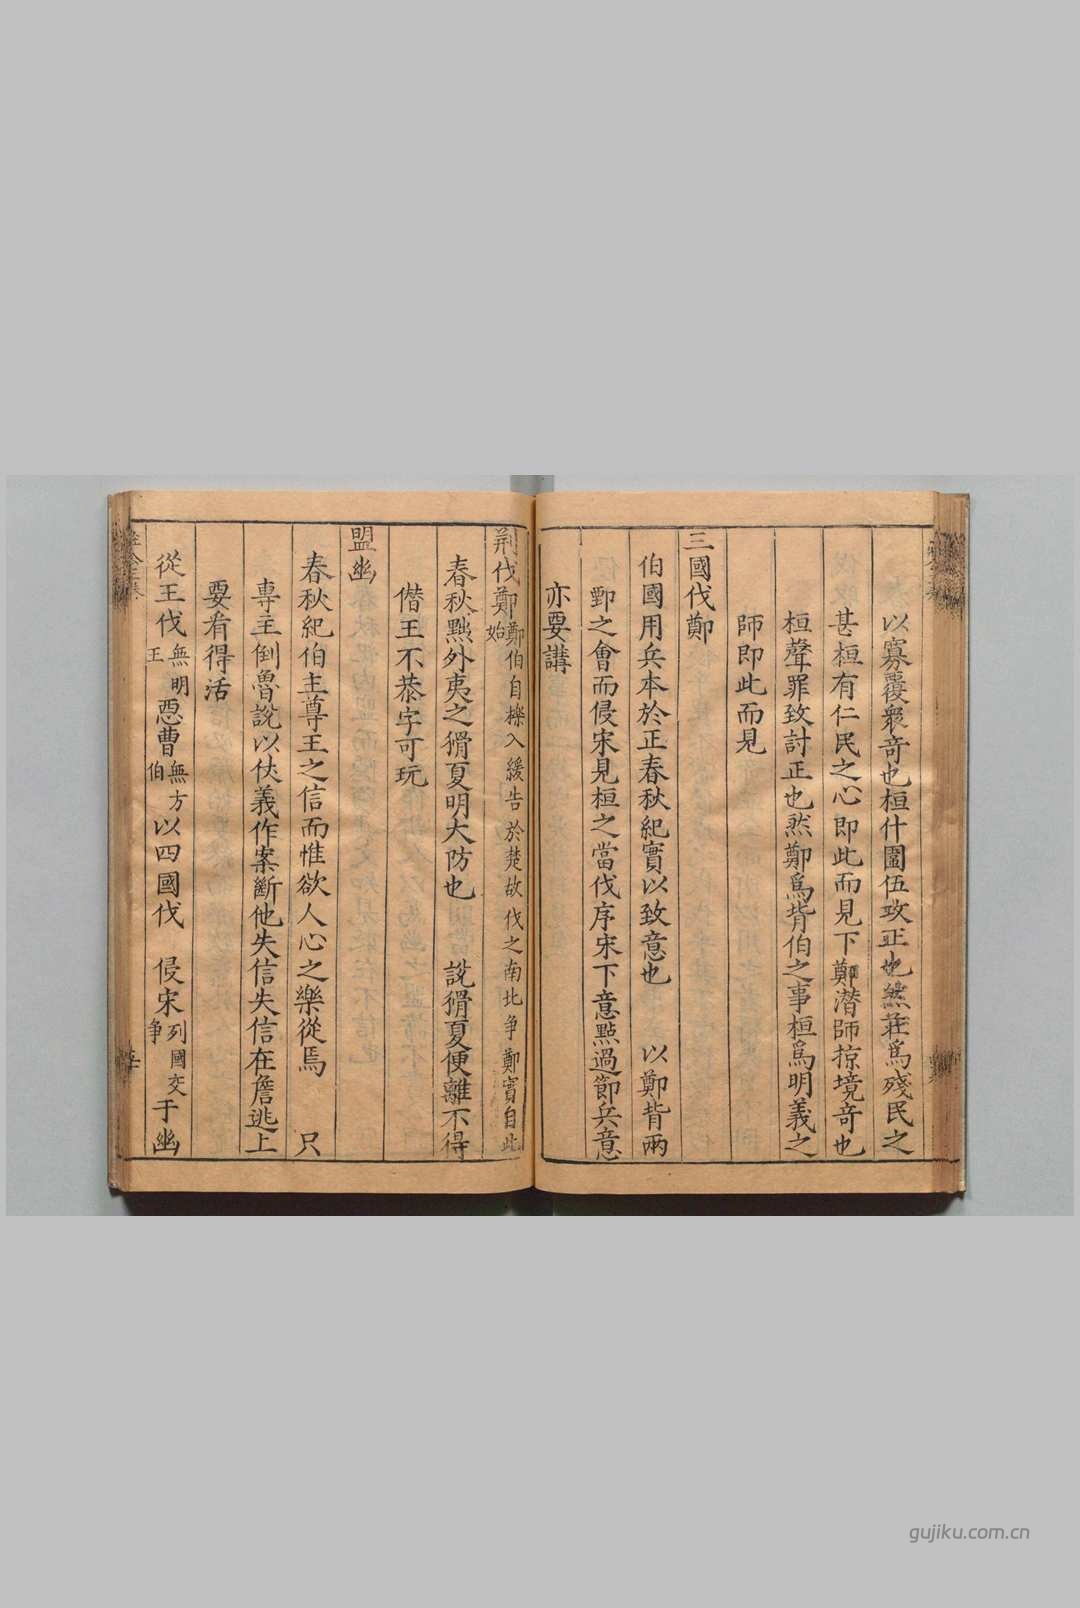 以寡覆衆奇也桓什圍伍攻正也然莊爲殘民之
甚桓有仁民之心即此而見下鄭潜師掠境奇也
桓聲罪致討正也然鄭爲背伯之事桓爲明義之
師即此而見
三國伐鄭
伯國用兵本於正春秋紀實以致意也 以鄭背兩
鄄之會而侵宋見桓之當伐序宋下意點過節兵意
亦要講
荆伐鄭鄭伯自櫟入緩告於楚故伐之南北争鄭實自此始
春秋黙外夷之猾夏明大防也 說猾夏便離不得
僭王不恭字可玩
盟幽
春秋紀伯主尊王之信而惟欲人心之樂從焉 只
專主倒魯説以伏義作案斷他失信失信在詹逃上
要看得活
從王伐無明王 惡曹無方伯 以四國伐 侵宋列國交争 于幽
gujiku.com.cn